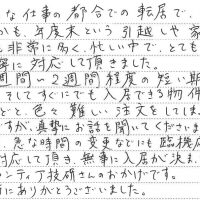 な仕事の都合での転居で、
かも、年度末という引越しや家
非常に多く、忙しい中で、とても
寧に対応して頂きました。
週間〜2週間程度の短い期
そしてすぐにでも入居できる物件
どと、色々難しい注文をしてしま
ですが、真摯にお話を聞いてくださいま
急な時間の変更などにも臨機応
対応して頂き、無事に入居が決ま
ンティア技研さんのおかげです。
にありがとうございました。